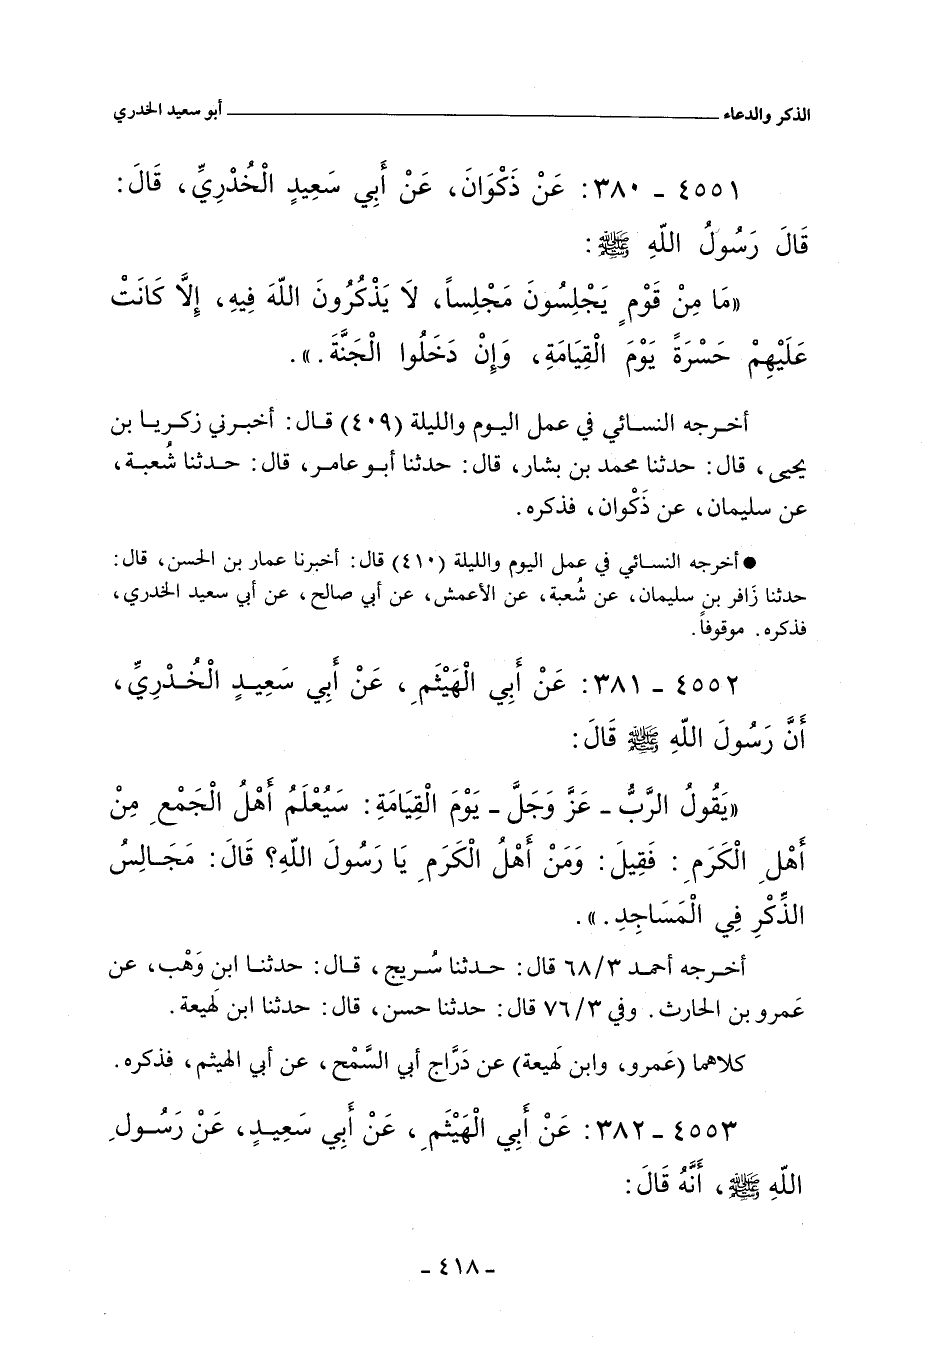 الذكر والدعاء ــــــــــــــــــــ أبو سعيد الخدري
٤٥٥١ - ٣٨٠: عَنْ ذَكْوَانَ، عَنْ أَبِي سَعِيدٍ الْخُدْرِيِّ، قَالَ:
قَالَ رَسُولُ اللّهِ ﷺ:
«مَا مِنْ قَوْمٍ يَجْلِسُونَ مَجْلِساً، لَا يَذْكُرُونَ اللّهَ فِيهِ، إِلَّا كَانَتْ
عَلَيْهِمْ حَسْرَةً يَوْمَ الْقِيَامَةِ، وَإِنْ دَخَلُوا الْجَنَّةَ.».
أخرجه النسائي في عمل اليوم والليلة (٤٠٩) قال: أخبرني زكريا بن
يحيى، قال: حدثنا محمد بن بشار، قال: حدثنا أبو عامر، قال: حدثنا شُعبة،
عن سليمان، عن ذَكْوان، فذكره.
● أخرجه النسائي في عمل اليوم والليلة (٤١٠) قال: أخبرنا عمار بن الحسن، قال:
حدثنا زَافر بن سليمان، عن شُعبة، عن الأعمش، عن أبي صالح، عن أبي سعيد الخدري،
فذكره. موقوفاً.
٤٥٥٢ - ٣٨١: عَنْ أَبِي الْهَيْثَمِ، عَنْ أَبِي سَعِيدٍ الْخُدْرِيِّ،
أَنَّ رَسُولَ اللّهِ ﷺ قَالَ:
«يَقُولُ الرَّبُّ - عَزَّ وَجَلَّ - يَوْمَ الْقِيَامَةِ: سَيُعْلَمُ أَهْلُ الْجَمْعِ مِنْ
أَهْلِ الْكَرَمِ: فَقِيلَ: وَمَنْ أَهْلُ الْكَرَمِ يَا رَسُولَ اللّهِ؟ قَالَ: مَجَالِسُ
الذِّكْرِ فِي الْمَسَاجِدِ.».
أخرجه أحمد ٦٨/٣ قال: حدثنا سُريج، قال: حدثنا ابن وَهْب، عن
عَمرو بن الحارث. وفي ٧٦/٣ قال: حدثنا حسن، قال: حدثنا ابن لَهيعة.
كلاهما (عَمرو، وابن لَهيعة) عن دَرَّاج أبي السَّمْح، عن أبي الهيثم، فذكره.
٤٥٥٣ - ٣٨٢: عَنْ أَبِي الْهَيْثَمِ، عَنْ أَبِي سَعِيدٍ، عَنْ رَسُولِ
اللّهِ ﷺ، أَنَّهُ قَالَ:
- ٤١٨ -